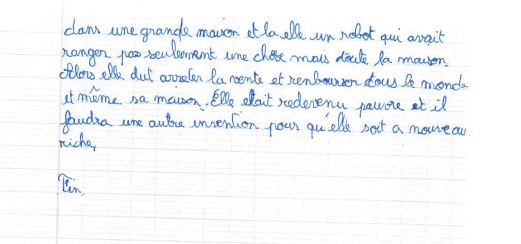 dans une grande maison et la elle un robot qui avait
ranger pas seulement une chose mais toute la maison.
Alors elle dut arreter la vente et rembourser tous le monde
et même sa maison. Elle etait redevenu pauvre et il
faudra une autre invention pour qu'elle soit a nouveau
riche,
Fin,